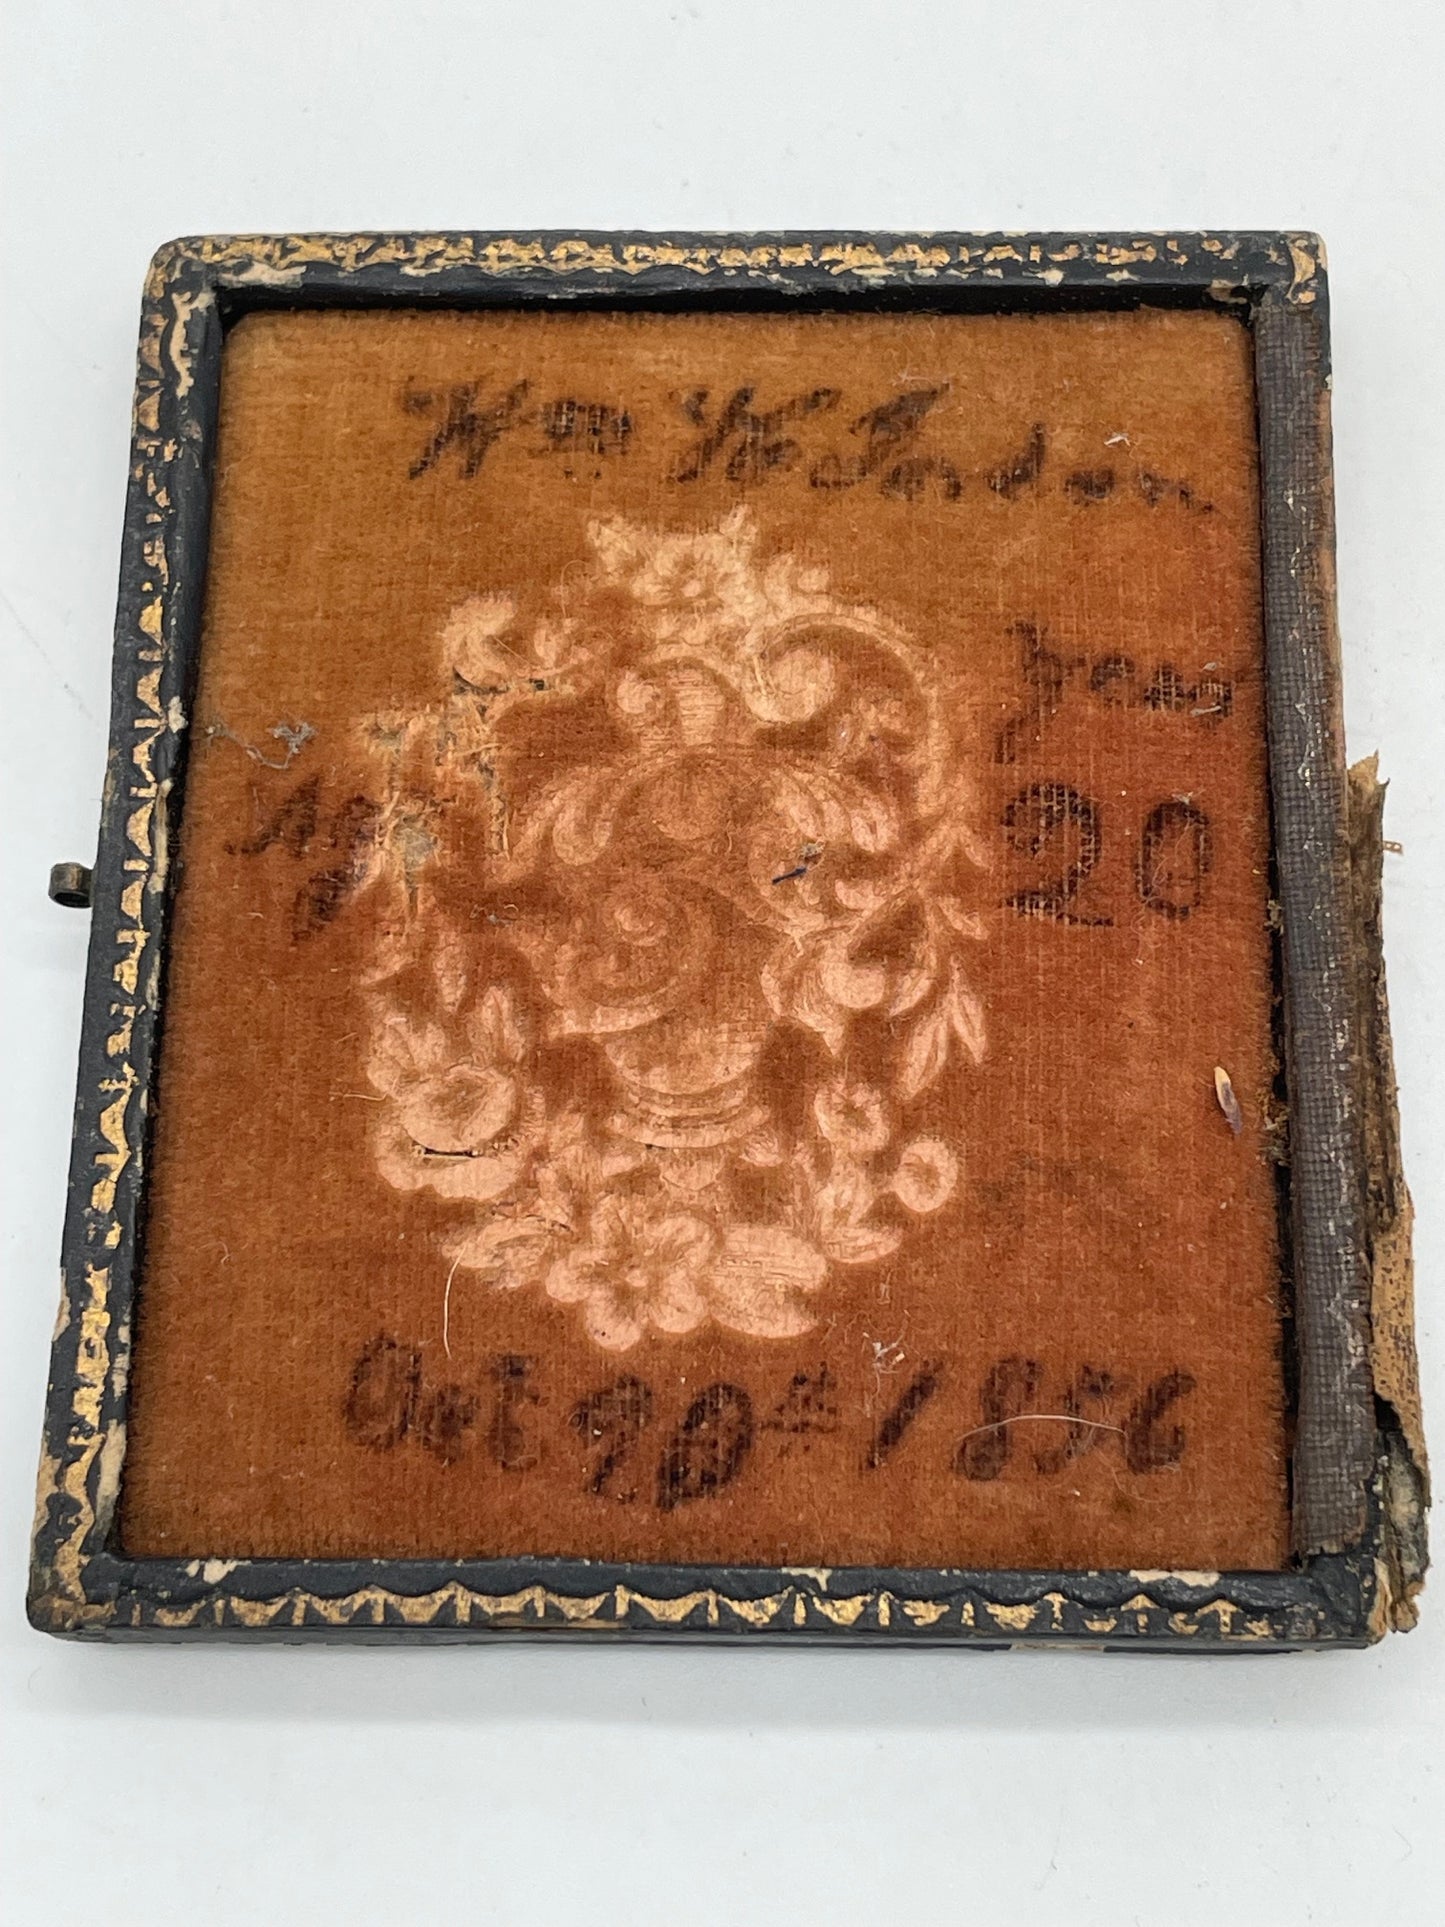 Wm W. Jordan
Age
years
20
Oct 20th 1856